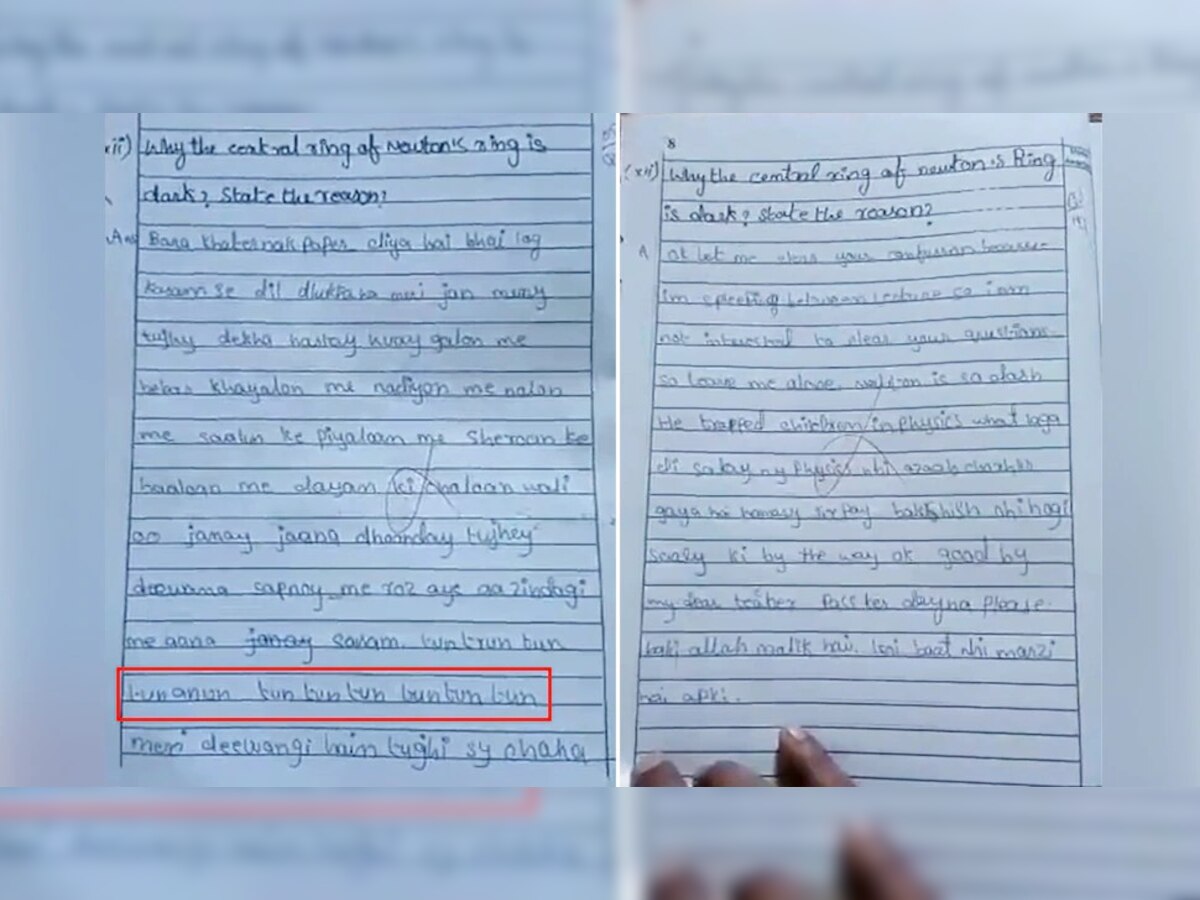 xii) Why the central ring of Newton's ring is
dark? State the reason?
Ans Bara khaternak paper diya hai bhai log
kasam se dil dhukta ha meri jan meny
tujhy dekha hastay huay galon me
bekas khayalon me nadiyon me nalon
me saalun ke piyalaon me Sheroan ke
baaloan me dayan ki chalaan wali
oo janay jaana dhoonday tujhey
deewana sapnoy me roz aye aa zindagi
me aana janay sanam. tun trun tun
tun anun tun tun tun tun tun tun
meri deewangi hain tujhi sy chaha
8
(xii) Why the central ring of newton's Ring
is dark? State the reason?
A let me clear your confusion because
im speeling between lecture so iam
not interested to clear your questions
so leave me alone. is so
He trapped children in physics what laga
di salay ny physics nhi azaab
gaya hai hamasy firpay bakshish nhi hogi
saaly ki by the way ok good by
my dear teaher Pass ker dayna please
baki allah malik hai. koi baat nhi marzi
hai apki.